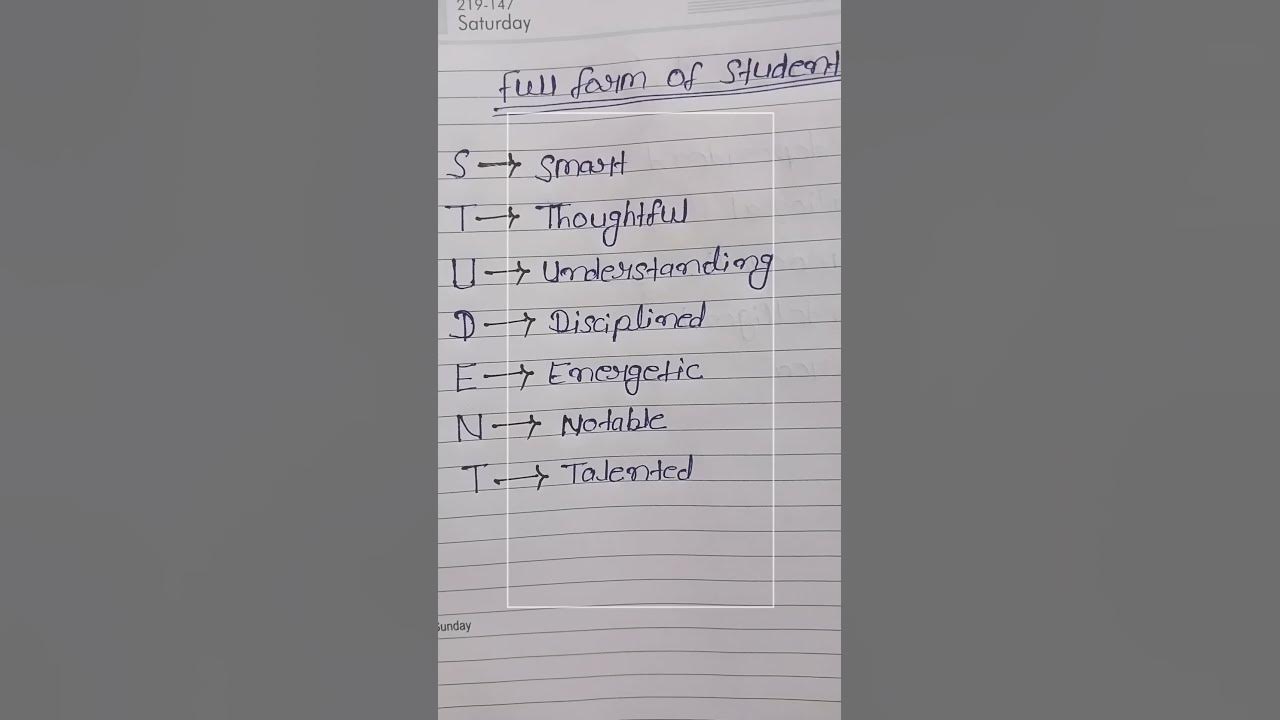 219-147
Saturday
Full form of Student
S → Smart
T → Thoughtful
U → Understanding
D → Disciplined
E → Energetic
N → Notable
T → Talented
Sunday